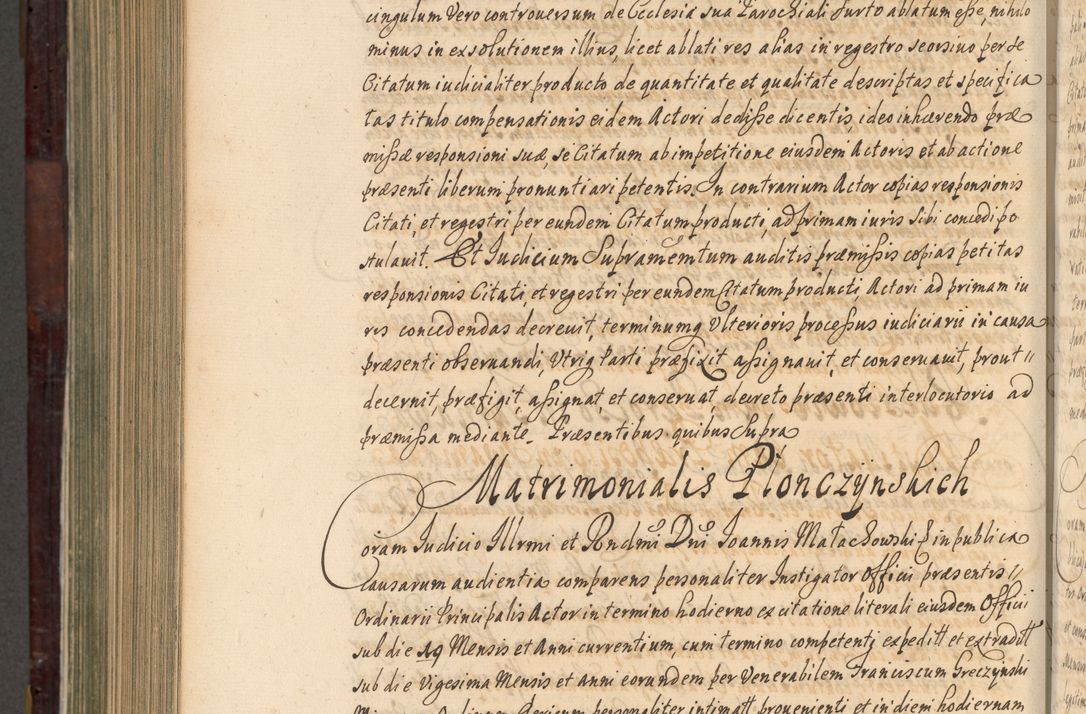 cingulum Vero controuersum de Ecclesia sua Parochiali furto ablatum esse, nihilo
minus in exsolutionem illius, licet ablati res alias in regestro seorsiuo per se
Citatum iudicialiter producto de quantitate et qualitate descriptas et specifica
tas titulo compensationis eidem Actori dedisse dicentis, ideo inhærendo præ
missæ responsioni suæ, se Citatum ab impetitione eiusdem Actoris et ab actione
præsenti liberum pronuntiari petentis. In contrarium Actor copias responsionis
Citati, et regestri per eundem Citatum producti, ad primam iuris sibi concedi po
stulauit. Et Iudicium Supramemtum auditis præmissis copias petitas
responsionis Citati, et regestri per eundem Citatum producti, Actori ad primam iu
ris concedendas decreuit, terminumq Vlterioris processus iudiciarii in causa
præsenti obseruandi, Vtriq Parti præfixit assignauit, et conseruauit, prout //
decernit, præfigit, assignat, et conseruat, decreto præsenti interlocutorio ad
præmissa mediante. Præsentibus quibus Supra
Matrimonialis Płonczÿnskich
Coram Iudicio Illrmi et Rndmi Dni Ioannis Małachowski E in publica
Causarum audientia comparens personaliter Instigator Officii præsentis //
Ordinarii Principalis Actor in termino hodierno ex citatione literali eiusdem Officii
sub die 19 Mensis et Anni currentium, cum termino competenti expeditt et extraditt
sub die Vigesima Mensis et anni eorundem per Venerabilem Franciscum Greczÿnski
personaliter intimatt prouenienti et in diem hodiernam